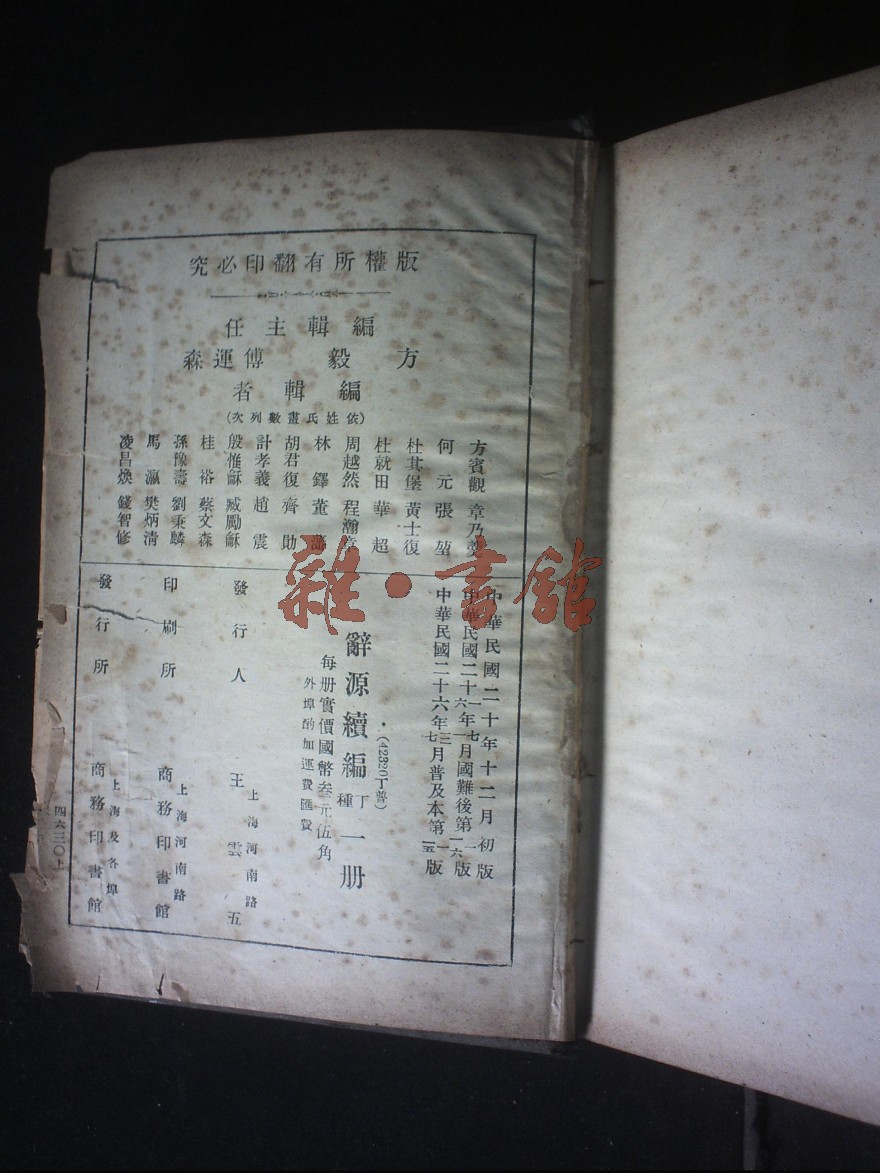 版權所有翻印必究
編輯主任
方毅　傅運森
編輯者
（依姓氏畫數列次）
方賓觀　章乃
何元　張堃
杜其堡　黃士復
杜就田　華超
周越然　程瀚章
林鐸　董
胡君復　齊勛
計孝義　趙震
殷惟龢　臧勵龢
桂裕　蔡文森
孫豫壽　劉秉麟
馬瀛　樊炳清
凌昌煥　錢智修
中華民國二十年十二月初版
中華民國二十一年七月國難後第一版
中華民國二十六年一月國難後第一六版
中華民國二十六年三月普及本第一版
中華民國二十六年七月普及本第一五版
（42320丁普）
辭源續編丁種一册
每册實價國幣叁元伍角
外埠酌加運費匯費
上海河南路
發行人　王雲五
上海河南路
印刷所　商務印書館
上海及各埠
發行所　商務印書館
四六三〇上
雜·書館